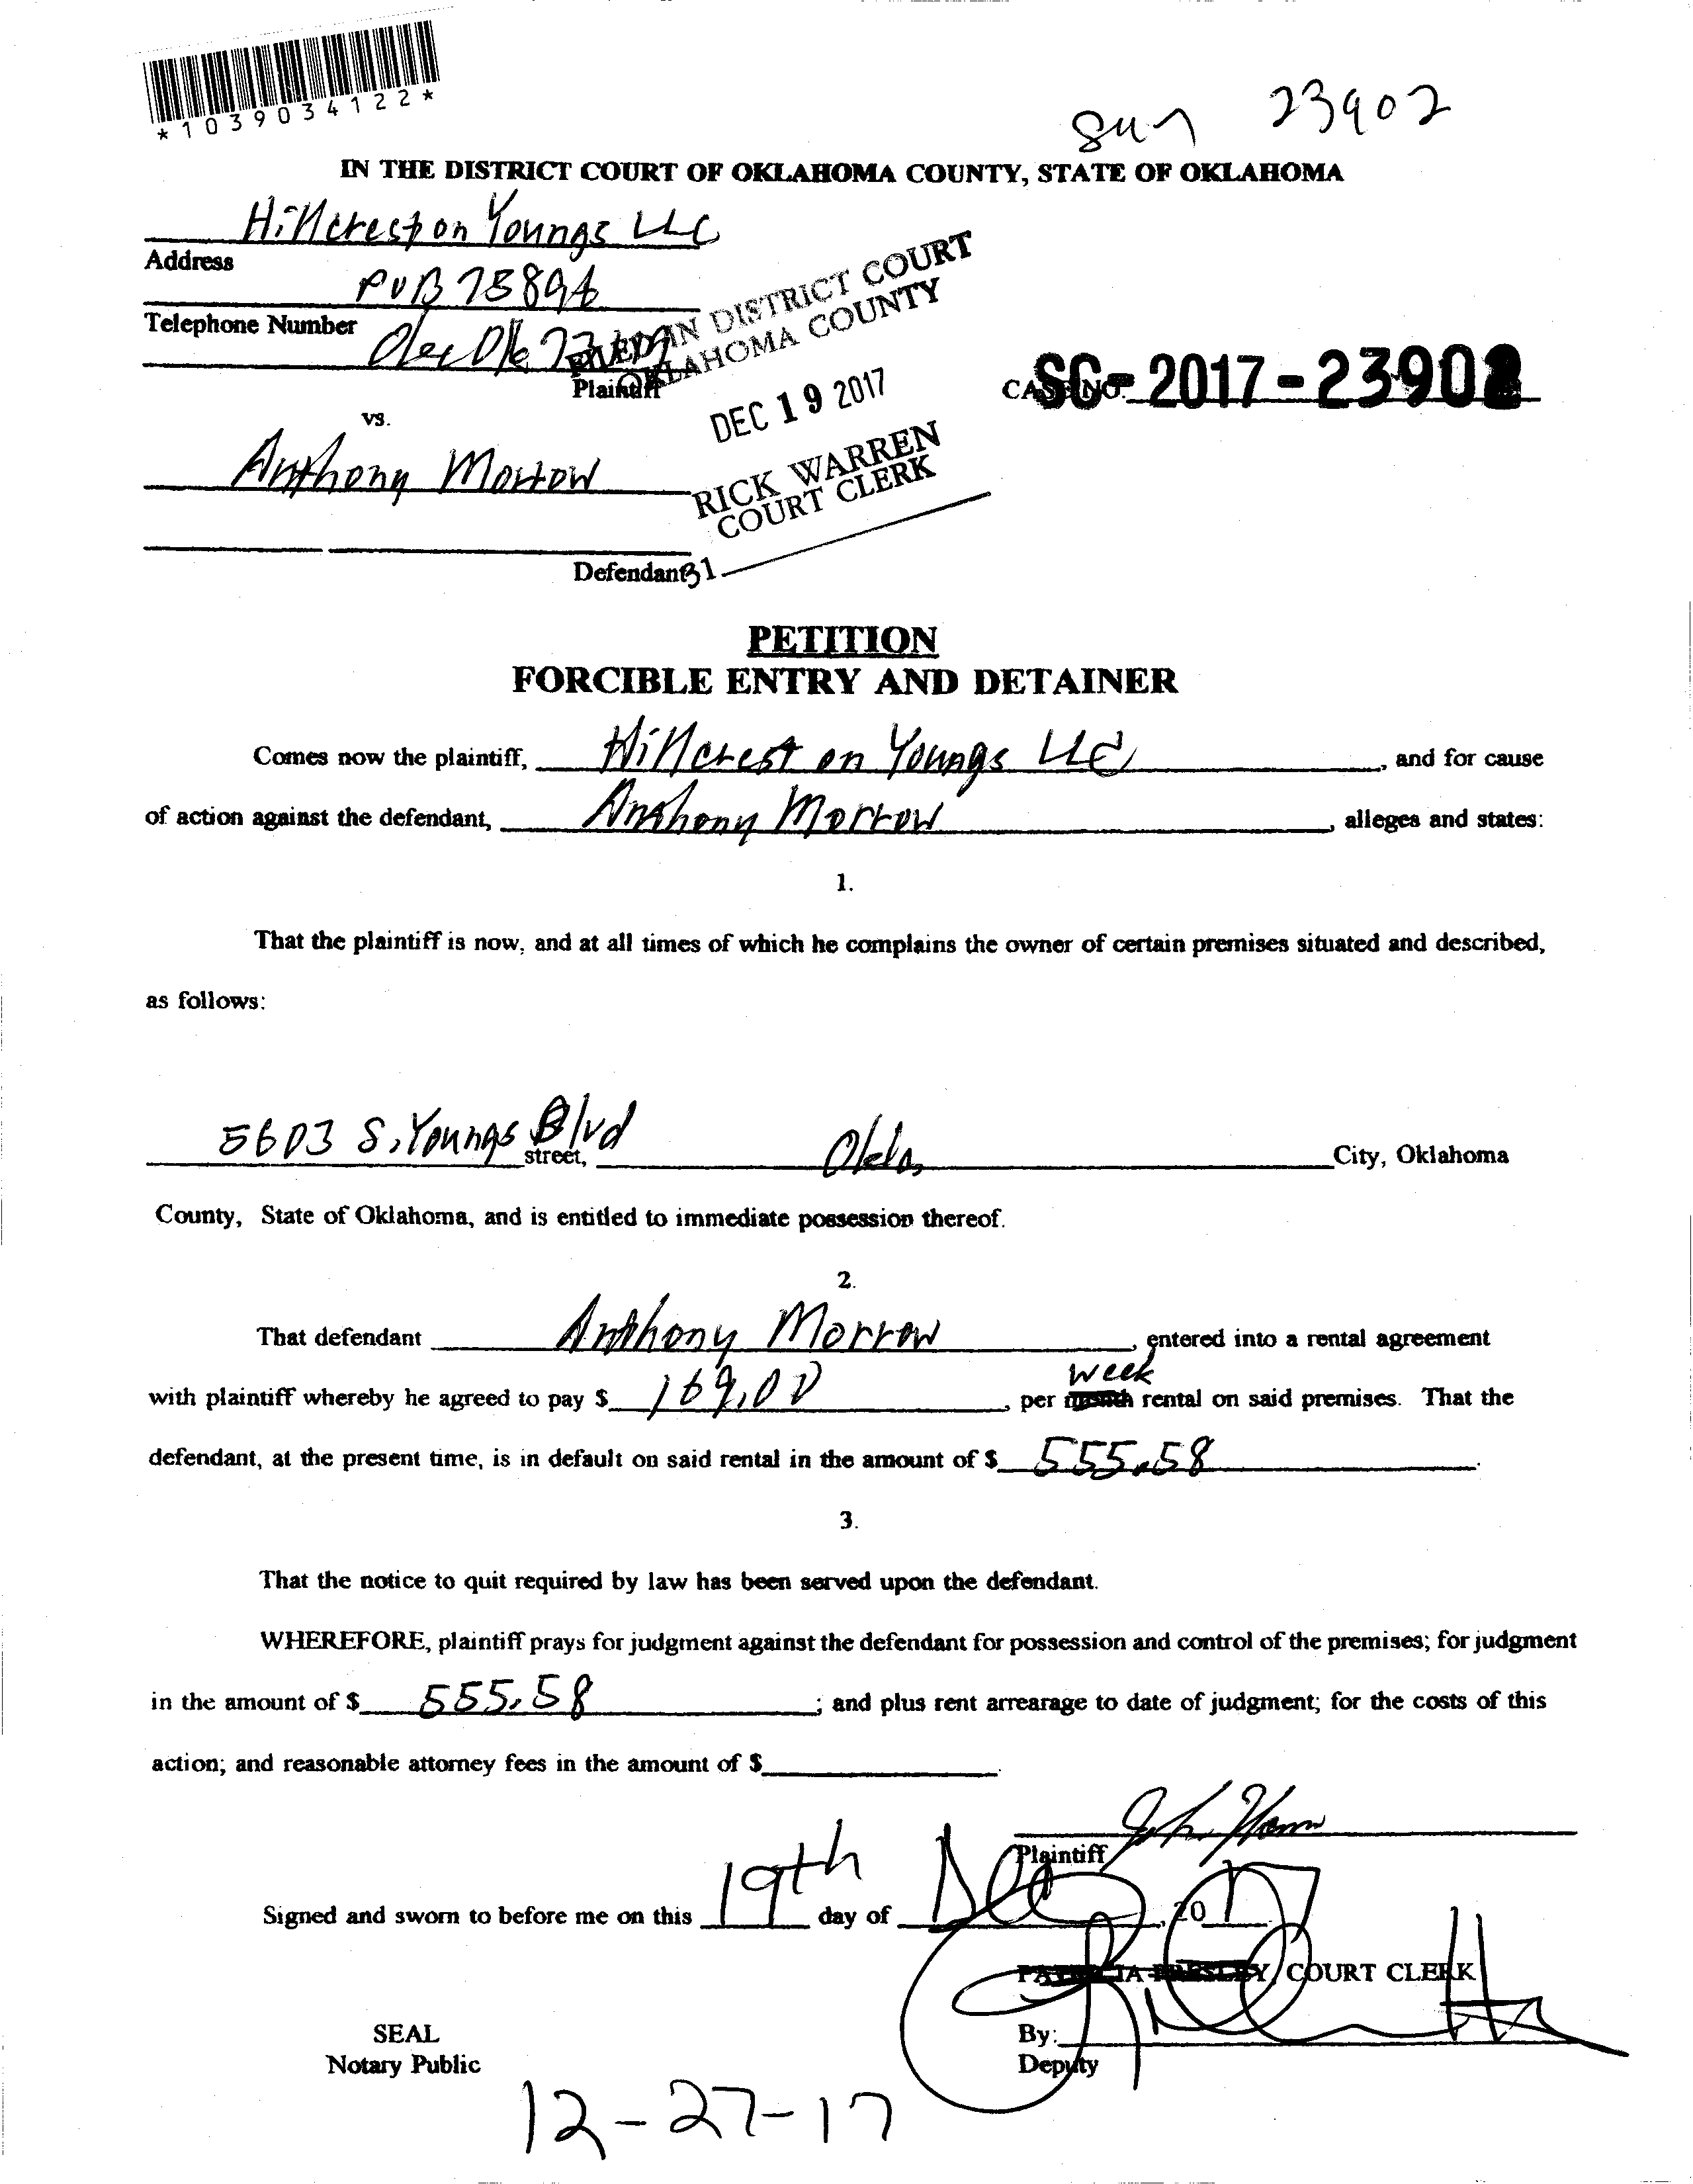 *1039034122*
23902
IN THE DISTRICT COURT OF OKLAHOMA COUNTY, STATE OF OKLAHOMA
Hillcrest on Youngs LLC
Address
POB 75894
Telephone Number
FILED IN DISTRICT COURT
OKLAHOMA COUNTY
Plaintiff
CASE NO. SC-2017-23902
vs.
DEC 19 2017
Anthony Morrow
RICK WARREN
COURT CLERK
31
Defendant
PETITION
FORCIBLE ENTRY AND DETAINER
Comes now the plaintiff, Hillcrest on Youngs LLC, and for cause
of action against the defendant, Anthony Morrow, alleges and states:
1.
That the plaintiff is now, and at all times of which he complains the owner of certain premises situated and described,
as follows:
5603 S. Youngs Blvd street, Okla, City, Oklahoma
County, State of Oklahoma, and is entitled to immediate possession thereof.
2.
That defendant Anthony Morrow, entered into a rental agreement
week
with plaintiff whereby he agreed to pay $ 169.00, per month rental on said premises. That the
defendant, at the present time, is in default on said rental in the amount of $ 555.58.
3.
That the notice to quit required by law has been served upon the defendant.
WHEREFORE, plaintiff prays for judgment against the defendant for possession and control of the premises; for judgment
in the amount of $ 555.58; and plus rent arrearage to date of judgment; for the costs of this
action; and reasonable attorney fees in the amount of $
Plaintiff
Signed and sworn to before me on this 19th day of Dec, 2017
PATRICIA PRESLEY, COURT CLERK
SEAL
By:
Notary Public
Deputy
12-27-17